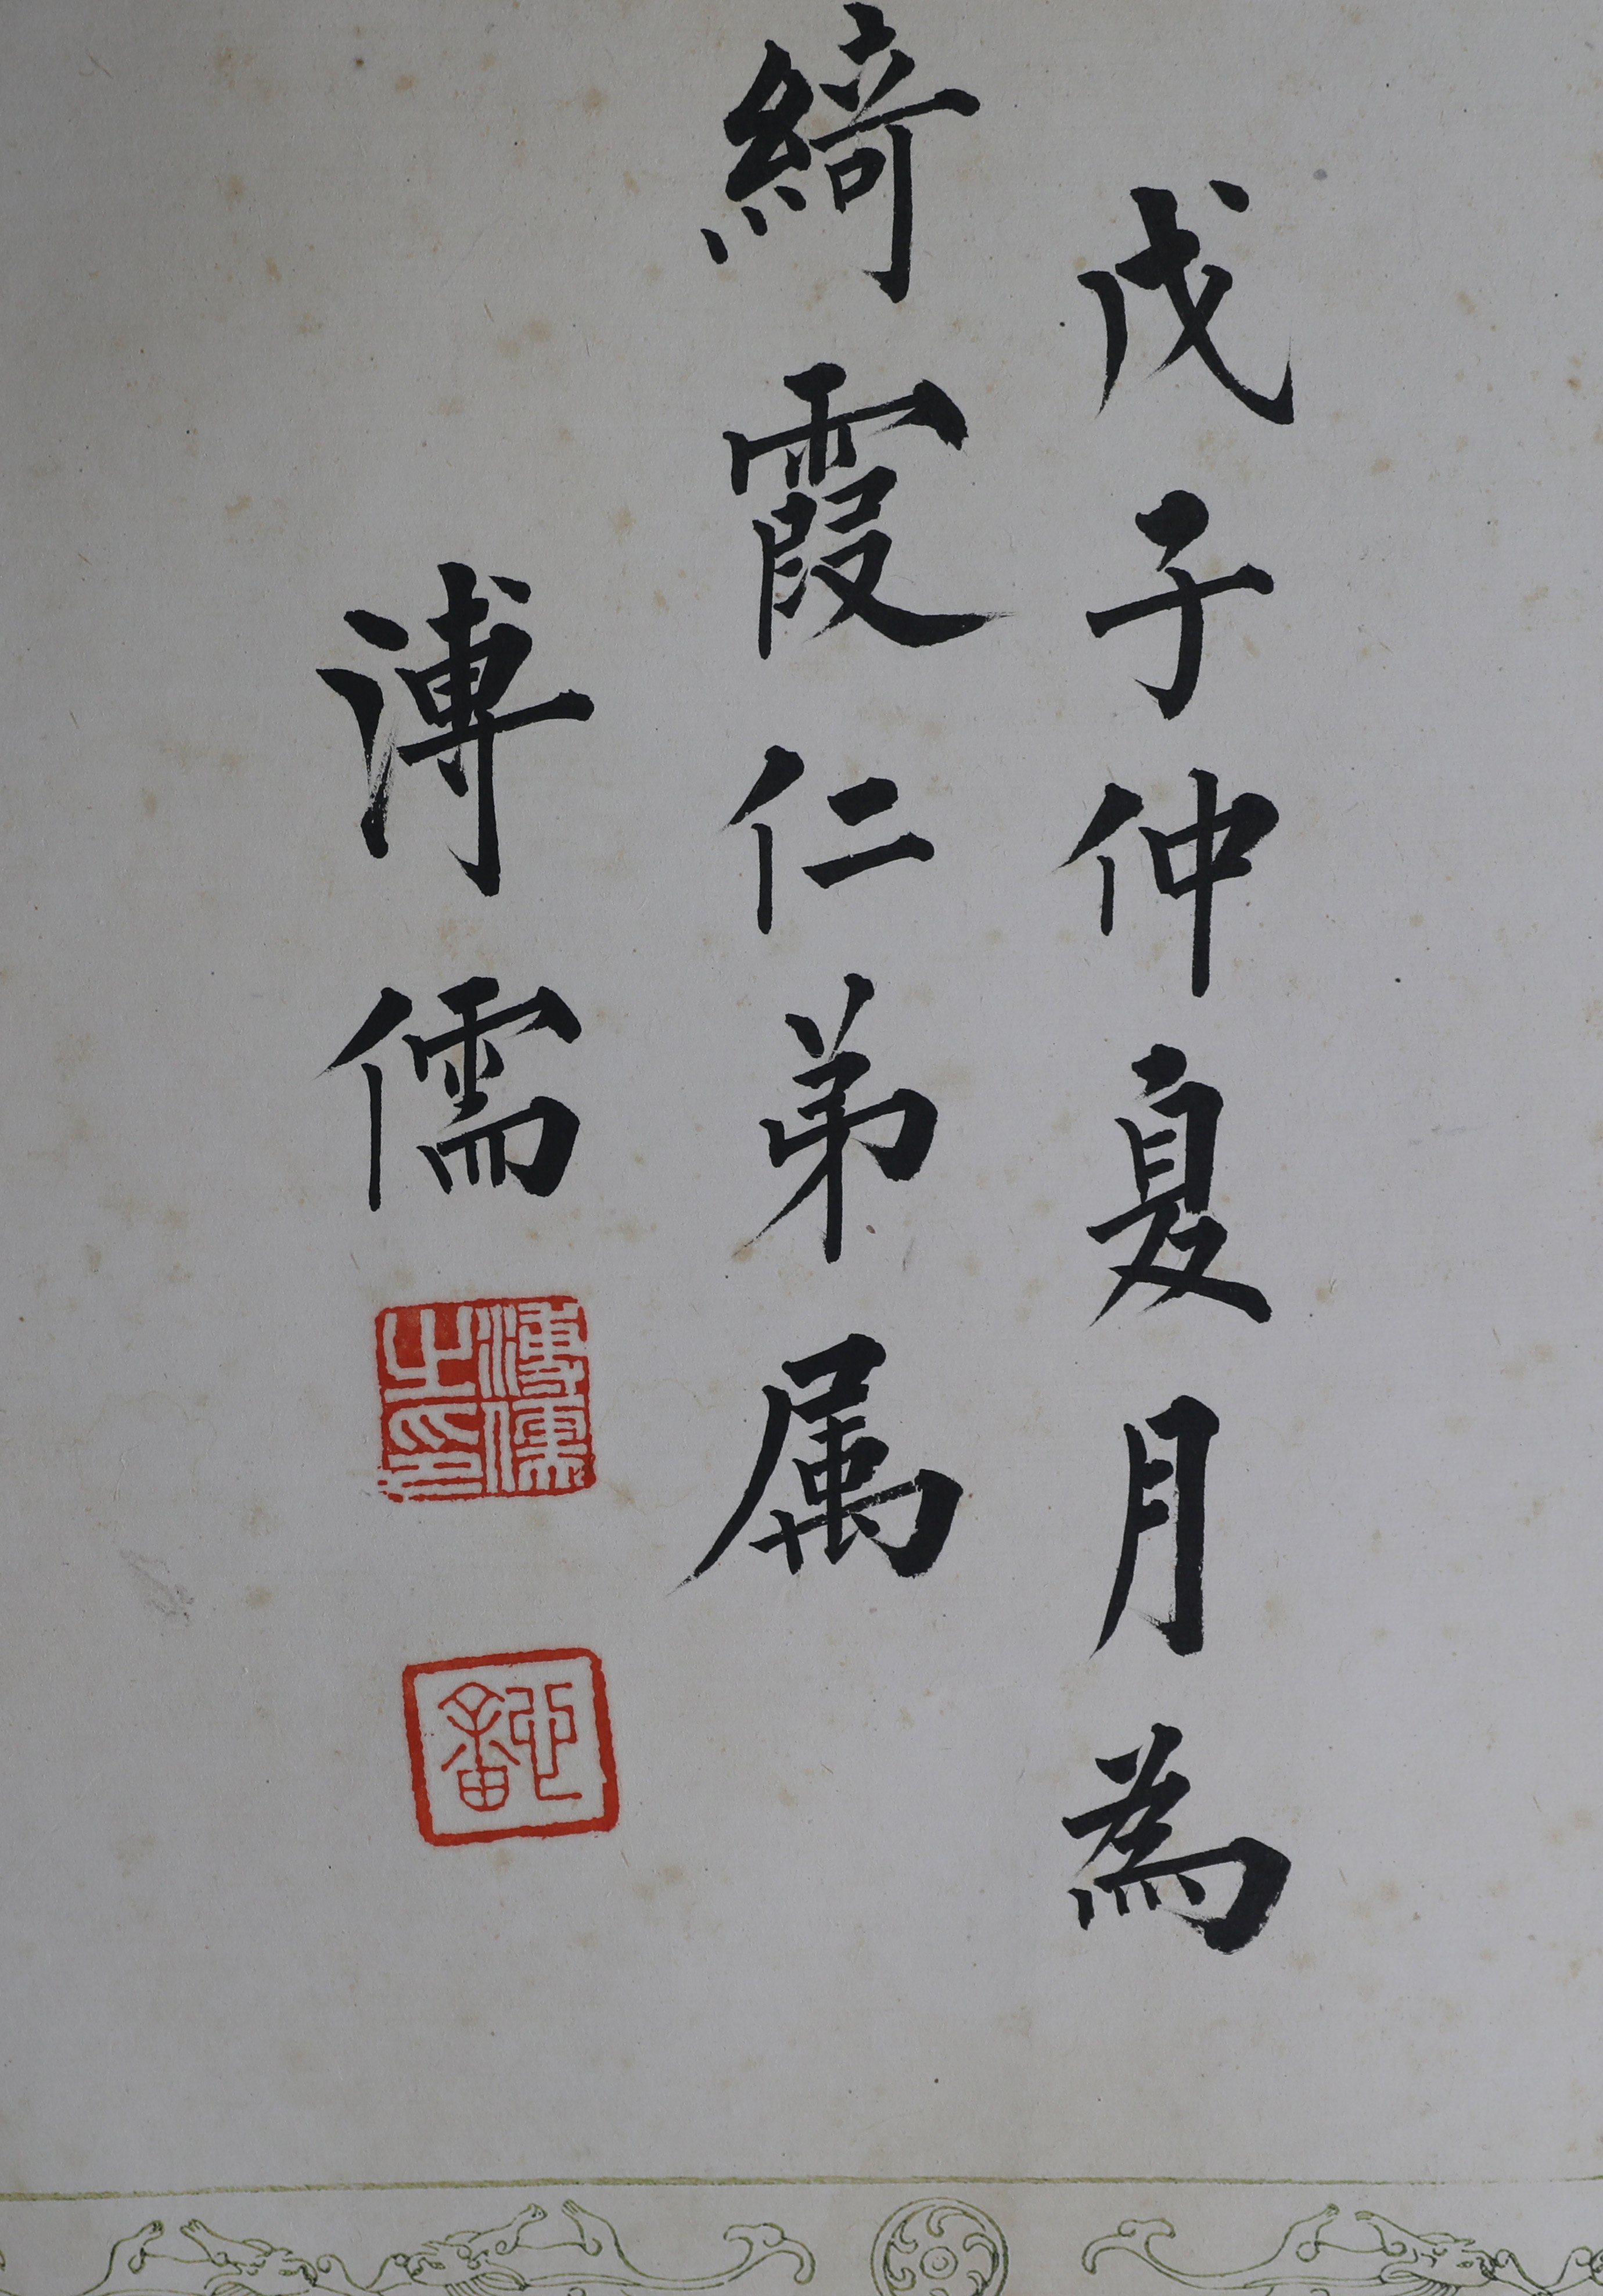 戊子仲夏月為
綺霞仁弟属
溥儒
溥儒
之印